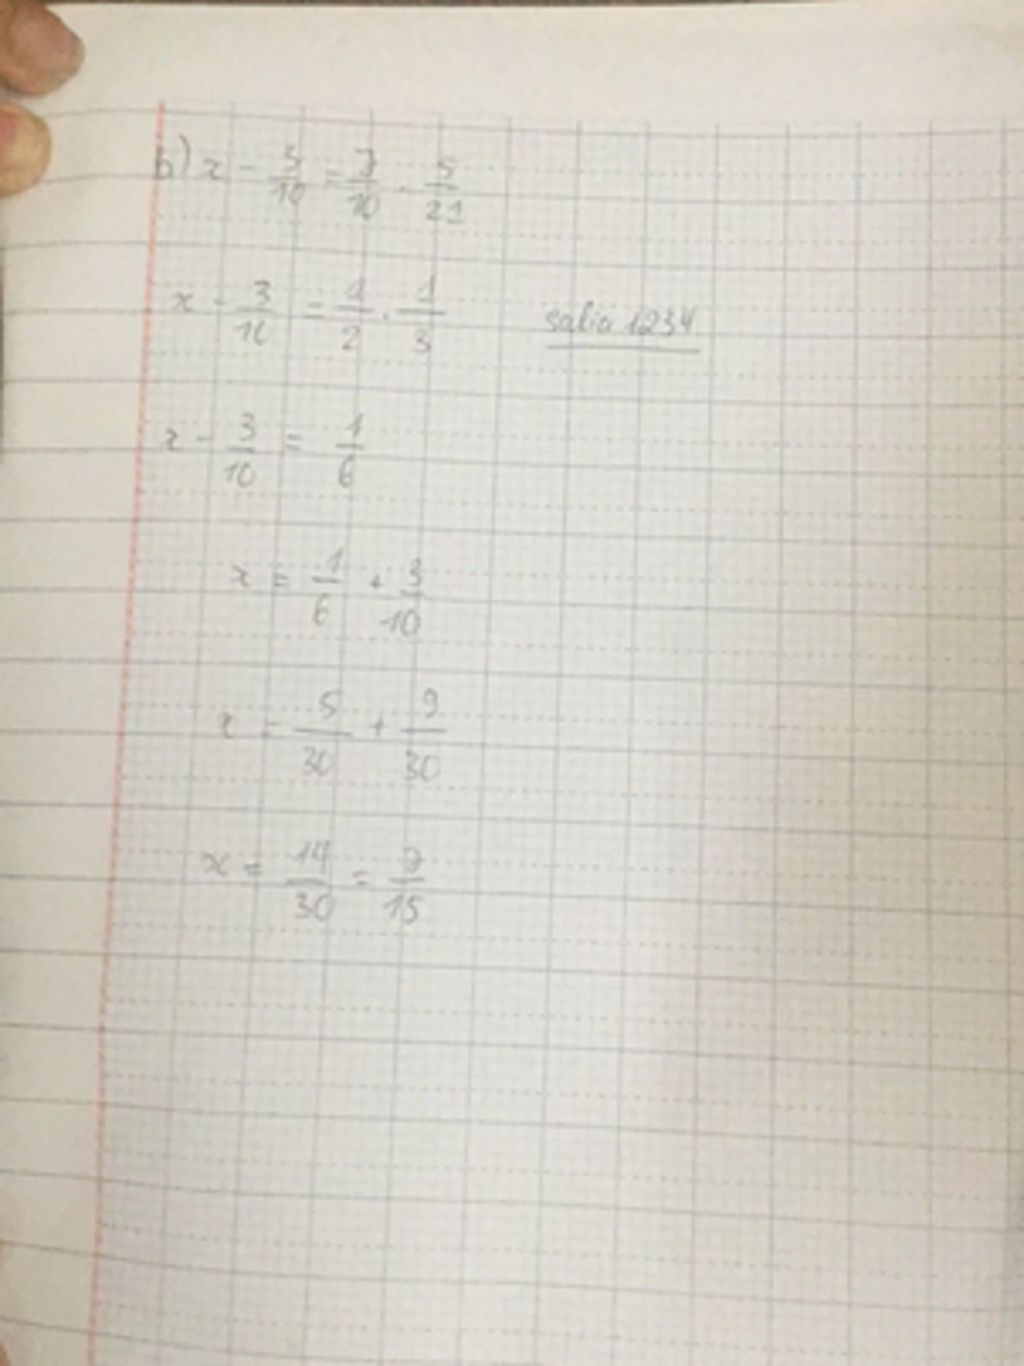 b) x - 3/10 = 7/10 . 5/21
x - 3/10 = 1/2 . 1/3
salia 1234
x - 3/10 = 1/6
x = 1/6 + 3/10
x = 5/30 + 9/30
x = 14/30 = 7/15